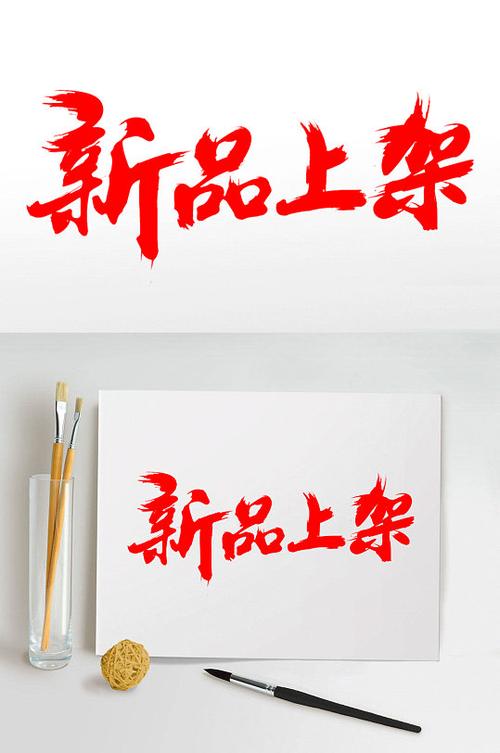 新品上架
新品上架